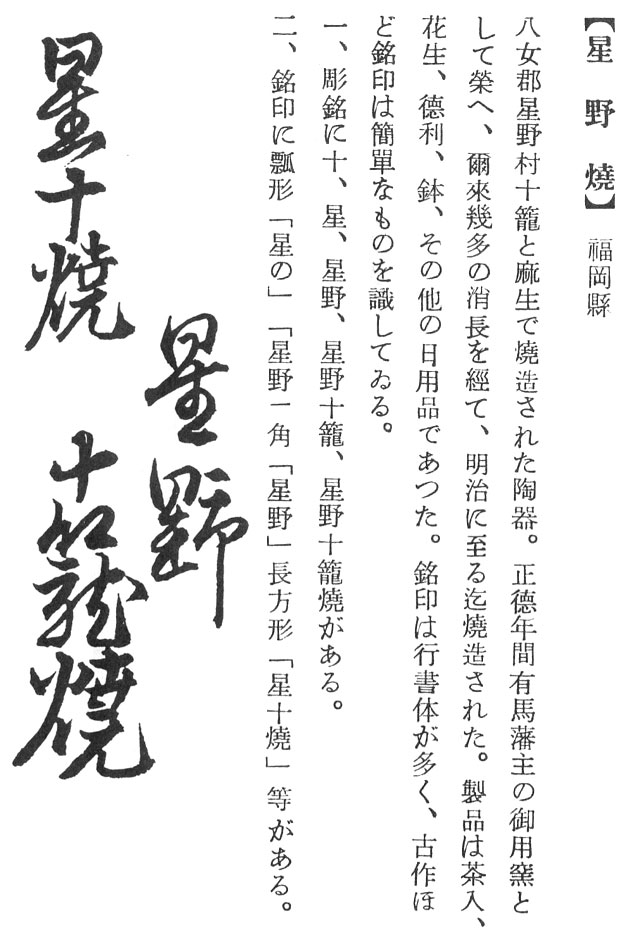 【星野燒】 福岡縣
八女郡星野村十籠と麻生で燒造された陶器。正德年間有馬藩主の御用窯と
して榮へ、爾來幾多の消長を經て、明治に至る迄燒造された。製品は茶入、
花生、德利、鉢、その他の日用品であつた。銘印は行書体が多く、古作ほ
ど銘印は簡單なものを識してゐる。
一、彫銘に十、星、星野、星野十籠、星野十籠燒がある。
二、銘印に瓢形「星の」「星野一角「星野」長方形「星十燒」等がある。
星野
星十燒
十籠燒